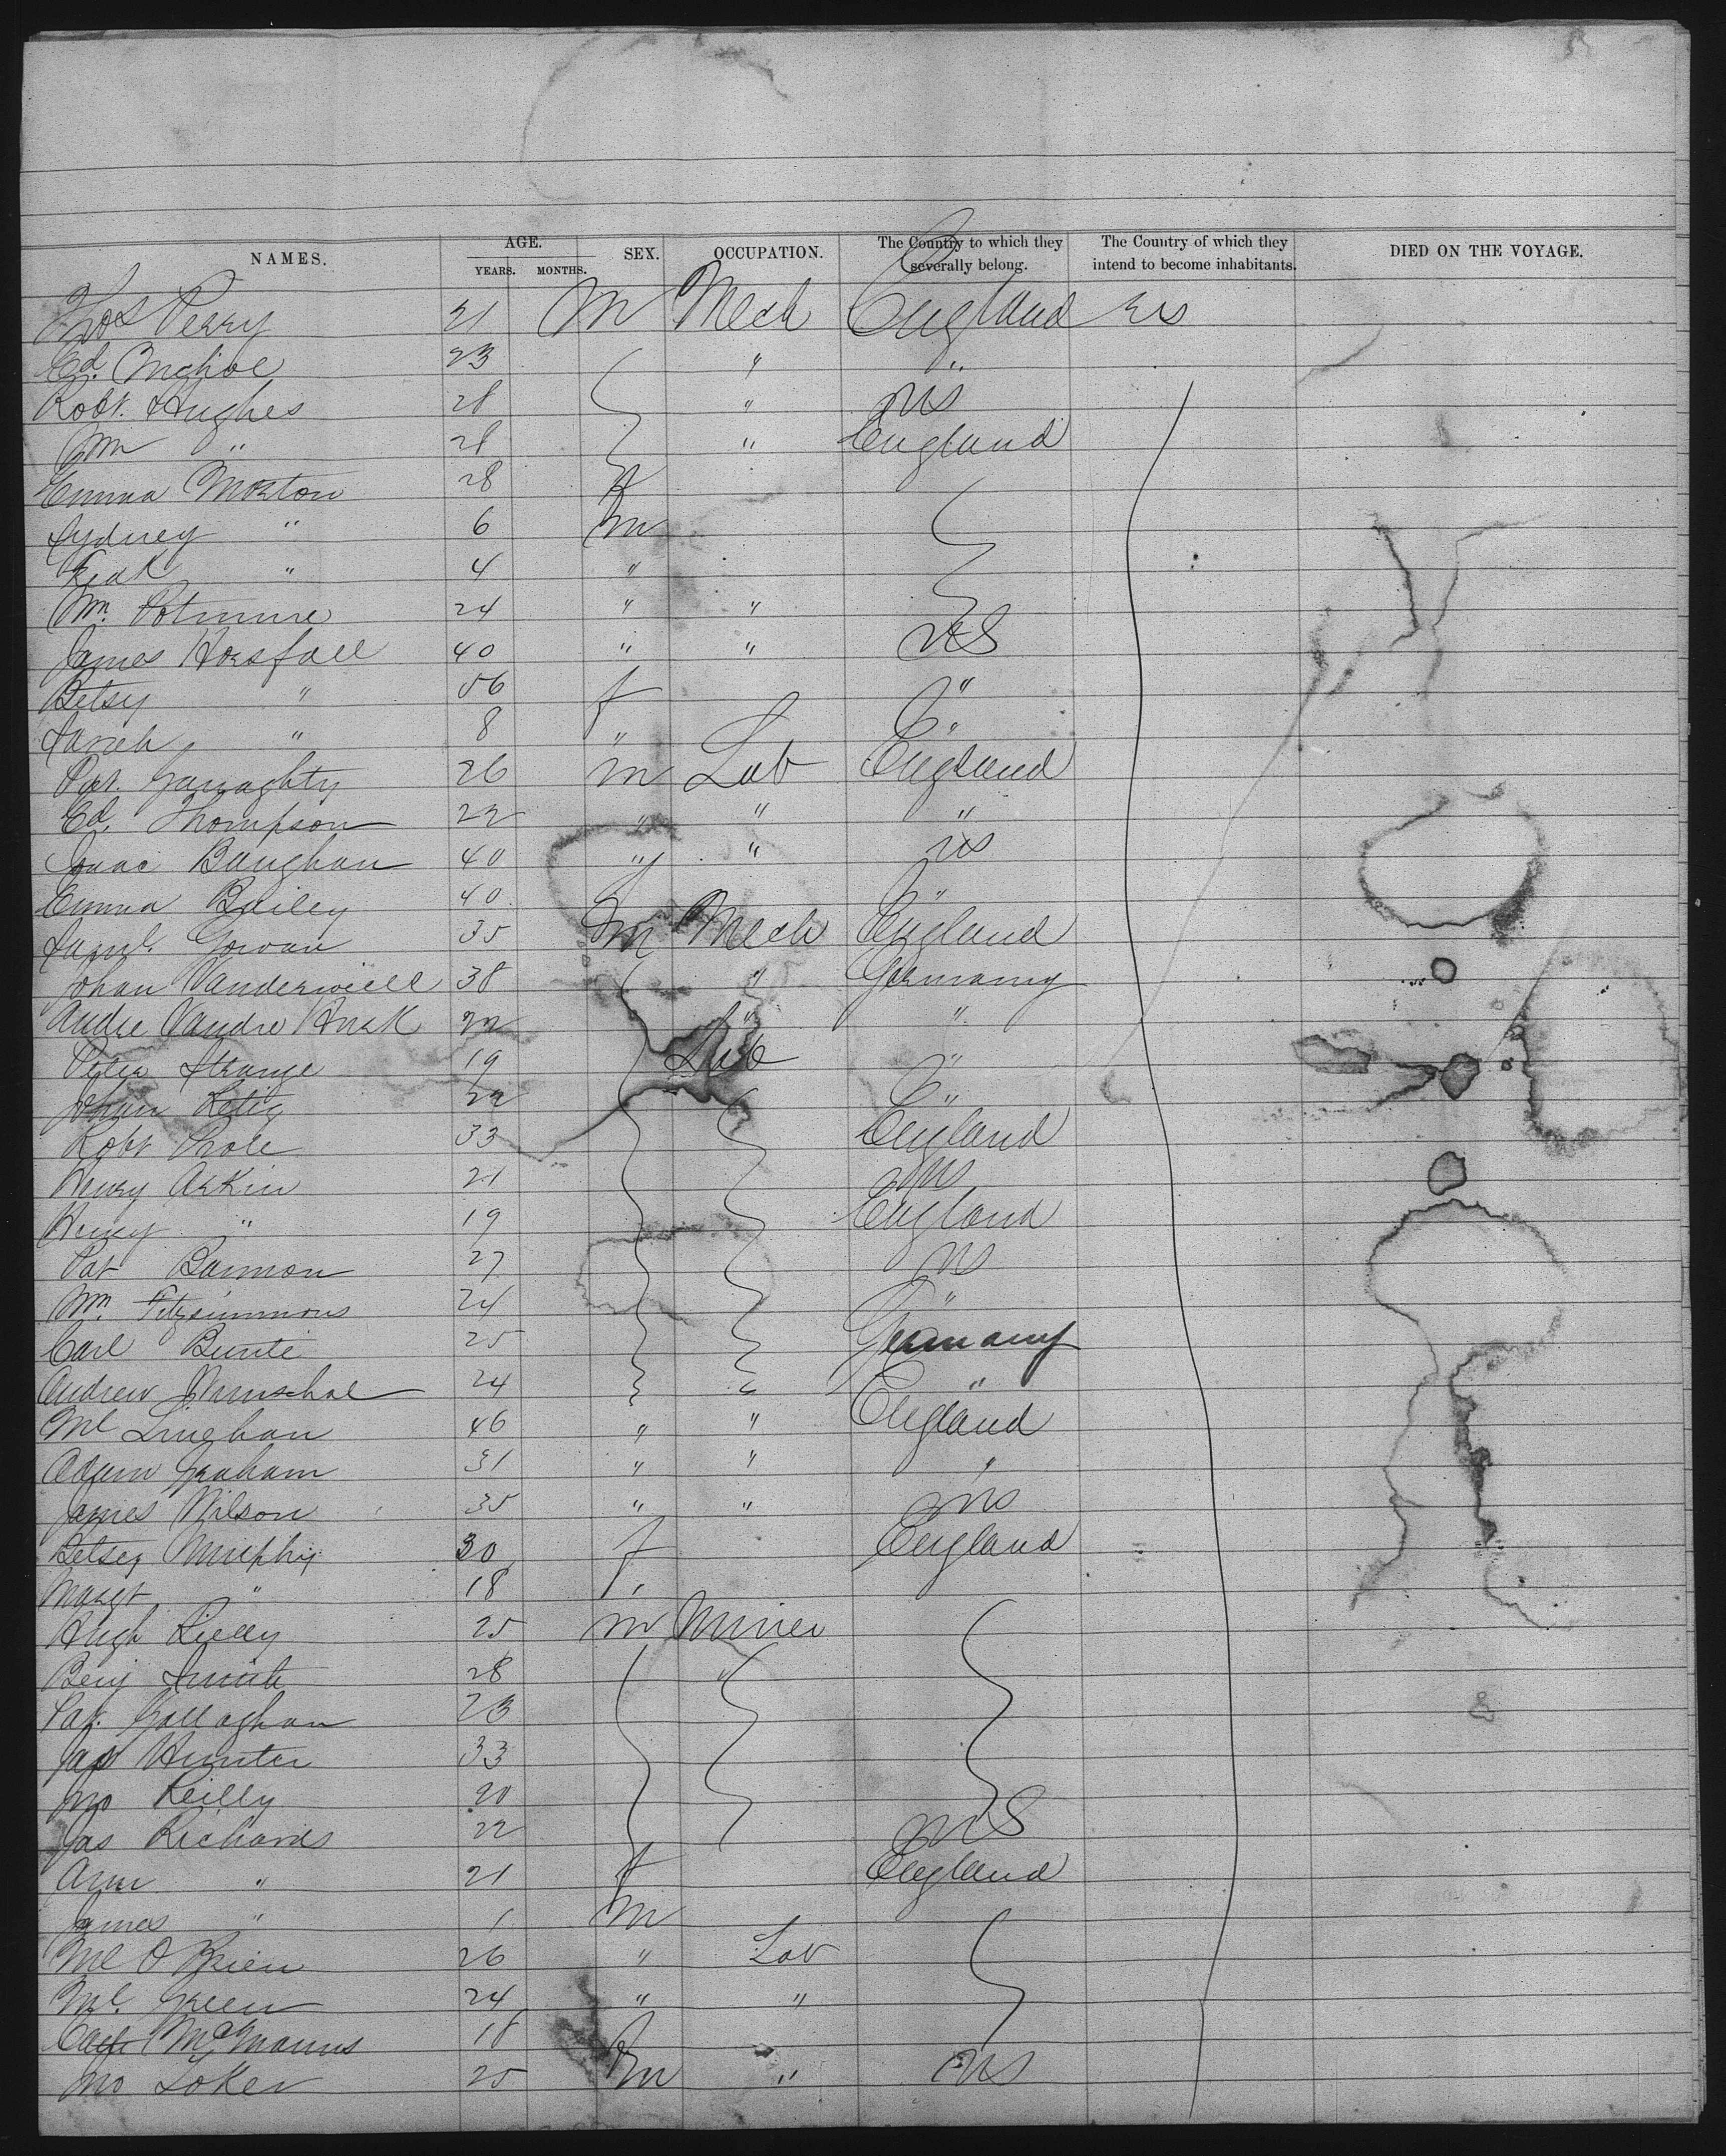 NAMES. AGE. YEARS. MONTHS. SEX. OCCUPATION. The Country to which they severally belong. The Country of which they intend to become inhabitants. DIED ON THE VOYAGE.
Thos Perry 21 M Mech England us
Ed. 23 " "
Robt. Hughes 28 " us
Wm " 28 " England
Emma Morton 28 f
Sydney " 6 m
" 4 "
Wm. 24 " "
James Horsfall 40 " " US
Betsy " 56 f "
Sarah " 8 " "
Pat. Garraghty 26 m Lab England
Ed. Thompson 22 " " "
Isaac Baughan 40 " " us
Emma Bailey 40 f "
Saml. Gowan 35 m Mech England
Johan Vanderwiell 38 " Germany
Andre Vandre Hurk 22 " "
Peter Strange 19 Lab "
Johan Retig 32 "
Robt Prole 33 England
Henry Arkin 21 us
Henry " 19 England
Pat Bannon 27 us
Wm. Fitzsimmons 24 "
Carl Bunte 25 Germany
Andrew 24 "
Ml Linehan 46 " " England
Adam Graham 31 " " "
James Wilson 35 " " us
Betsey Murphy 30 f England
Margt " 18 f
Hugh Rielly 25 m Miner
Benj Smith 28 "
Pat. Gallaghan 23
Jas Hunter 33
Jno Reilly 20
Jas Richards 22 US
Ann " 21 f England
James " 1 m
Ml O'Brien 26 " Lab
Ml. Green 24 " "
Cath McManus 18 f
Jno Loker 25 m " us